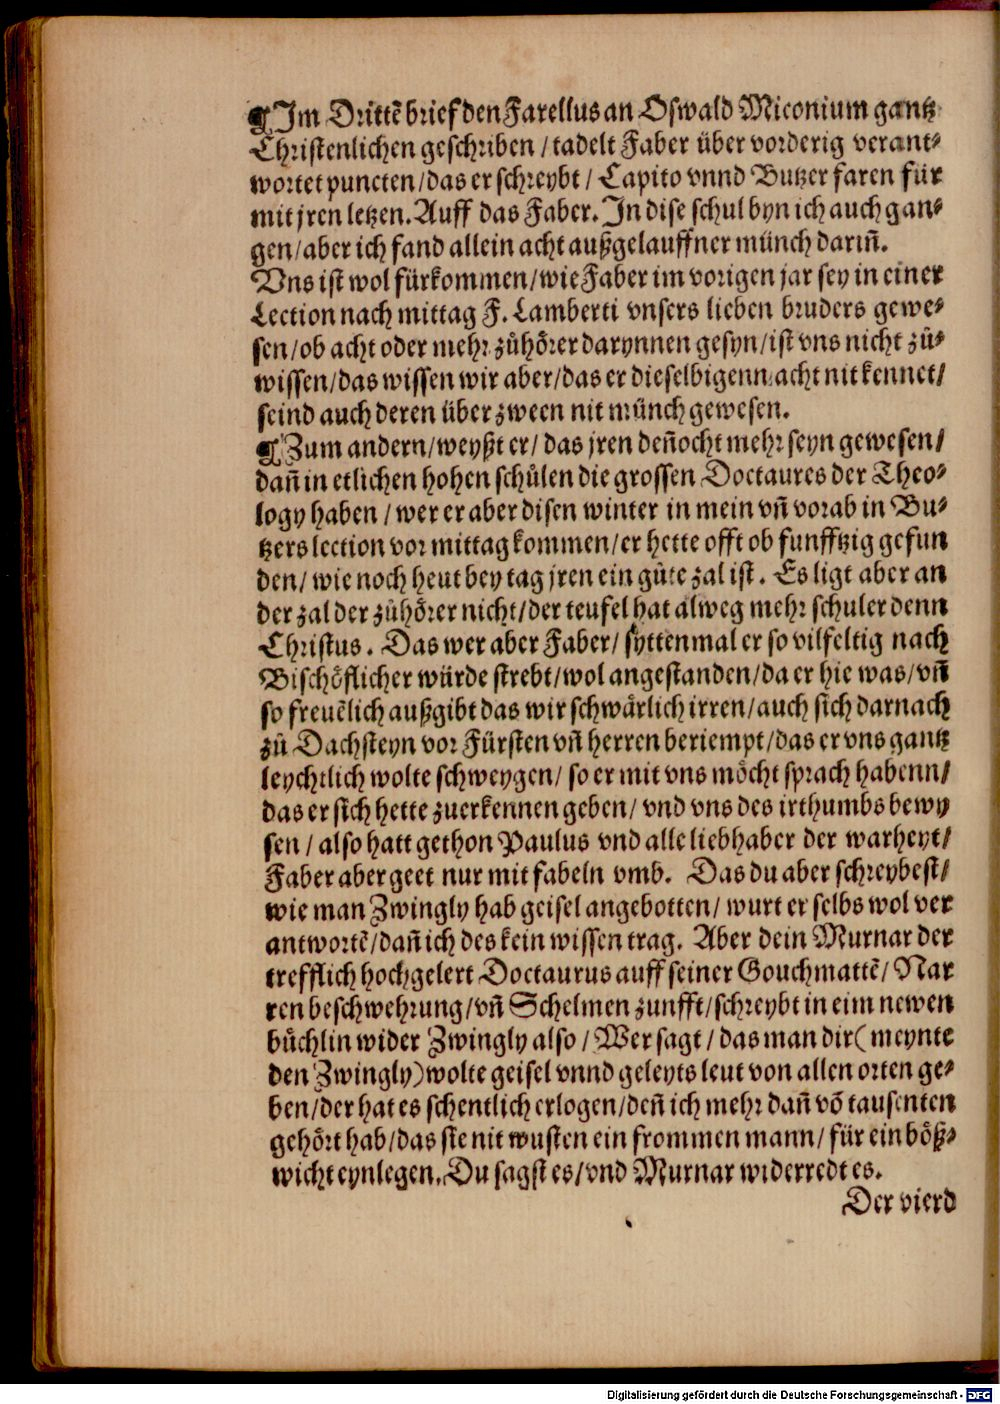 ¶ Im Drittē brief den Farellus an Oswald Miconium gantz
Christenlichen geschriben / tadelt Faber über vorderig verant⸗
wortet puncten / das er schreybt / Capito vnnd Butzer faren für
mit jren letzen. Auff das Faber. In dise schul byn ich auch gan⸗
gen / aber ich fand allein acht außgelauffner münch dariñ.
Vns ist wol fürkommen / wie Faber im vorigen jar sey in einer
Lection nach mittag F. Lamberti vnsers lieben bruders gewe⸗
sen / ob acht oder mehr zůhörer darynnen gesyn / ist vns nicht zů⸗
wissen / das wissen wir aber / das er dieselbigenn acht nit kennet /
seind auch deren über zween nit münch gewesen.
¶ Zum andern / weyßt er / das jren deñocht mehr seyn gewesen /
dañ in etlichen hohen schůlen die grossen Doctaures der Theo⸗
logy haben / wer er aber disen winter in mein vñ vorab in Bu⸗
tzers lection vor mittag kommen / er hette offt ob funfftzig gefun
den / wie noch heut bey tag jren ein gůte zal ist. Es ligt aber an
der zal der zůhörer nicht / der teufel hat alweg mehr schuler denn
Christus. Das wer aber Faber / syttenmal er so vilfeltig nach
Bischöflicher würde strebt / wol angestanden / da er hie was / vñ
so freuēlich außgibt das wir schwärlich irren / auch sich darnach
zů Dachsteyn vor Fürsten vñ herren beriempt / das er vns gantz
leychtlich wolte schweygen / so er mit vns möcht sprach habenn /
das er sich hette zuerkennen geben / vnd vns des irthumbs bewy
sen / also hatt gethon Paulus vnd alle liebhaber der warheyt /
Faber aber geet nur mit fabeln vmb. Das du aber schreybest /
wie man Zwingly hab geisel angebotten / wurt er selbs wol ver
antwortē / dañ ich des kein wissen trag. Aber dein Murnar der
trefflich hochgelert Doctaurus auff seiner Gouchmattē / Nar
ren beschwehrung / vñ Schelmen zunfft / schreybt in eim newen
bůchlin wider Zwingly also / Wer sagt / das man dir ( meynte
den Zwingly ) wolte geisel vnnd geleyts leut von allen orten ge⸗
ben / der hat es schentlich erlogen / deñ ich mehr dañ vō tausenten
gehört hab / das ste nit wusten ein frommen mann / für ein böß⸗
wicht eynlegen. Du sagst es / vnd Murnar widerredt es.
Der vierd
Digitalisierung gefördert durch die Deutsche Forschungsgemeinschaft - DFG